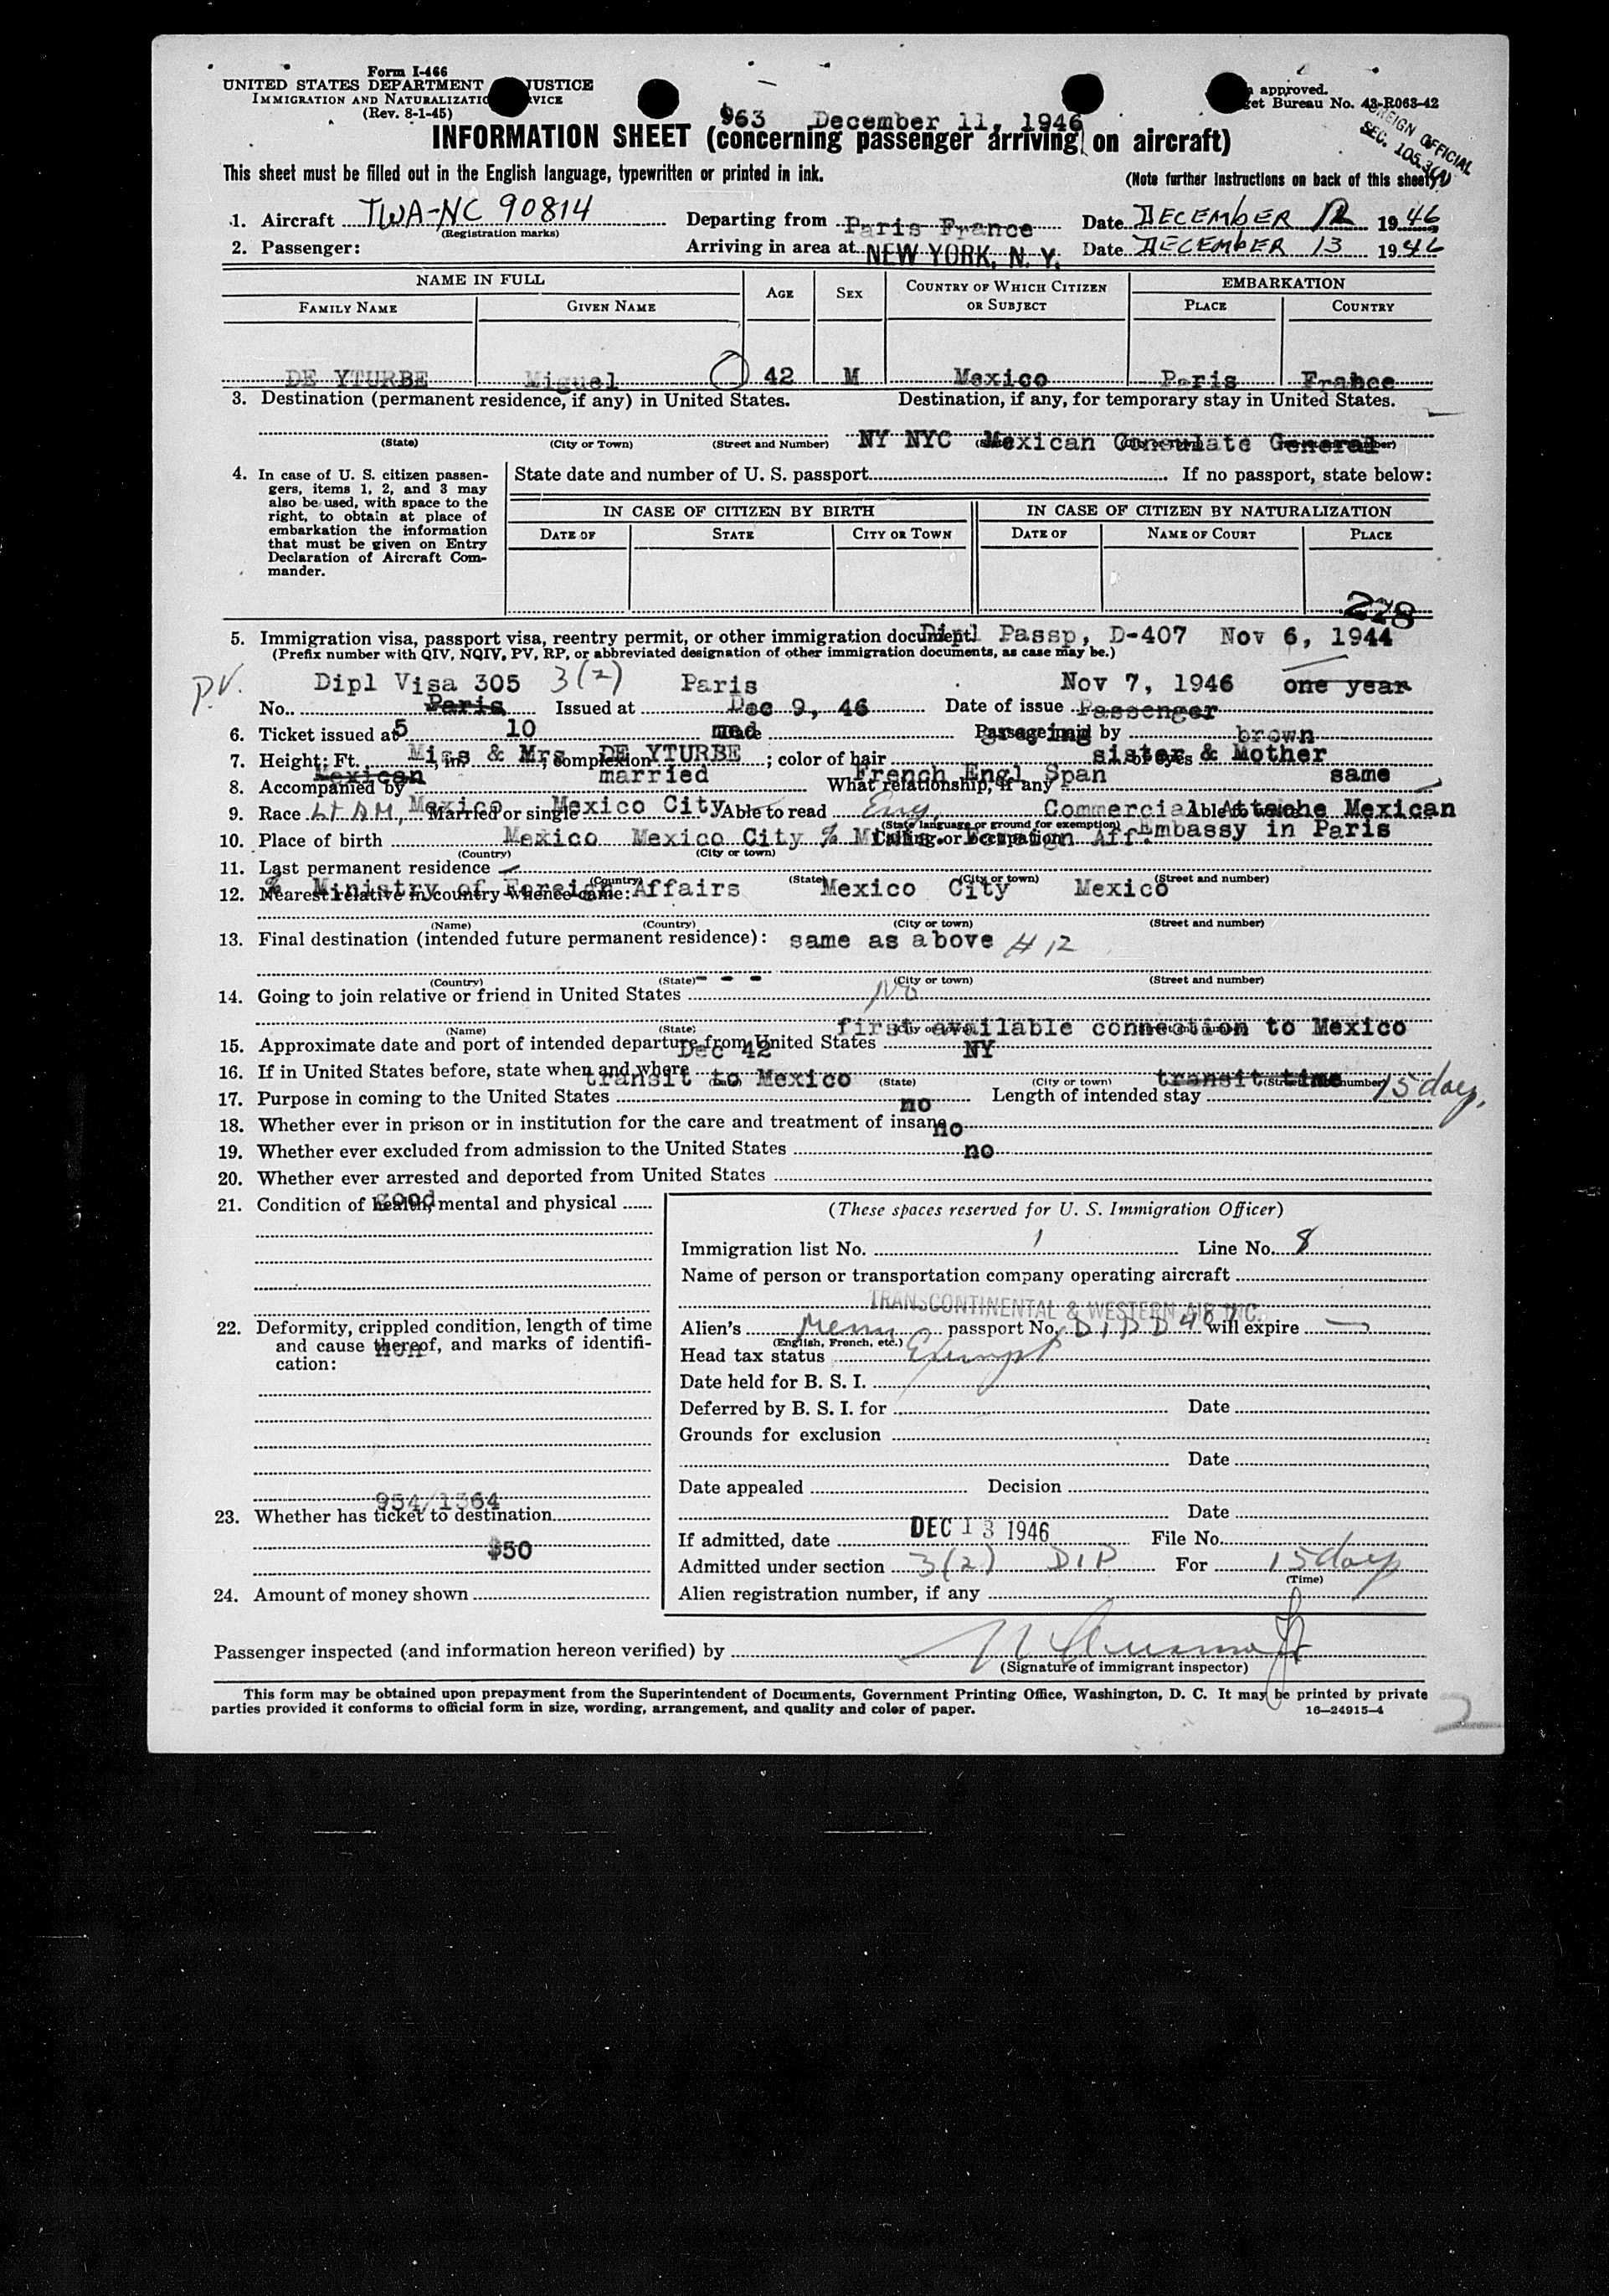 Form I-466
UNITED STATES DEPARTMENT JUSTICE
IMMIGRATION AND NATURALIZATION SERVICE
(Rev. 8-1-45)
approved.
Bureau No. 43-R063-42
FOREIGN OFFICIAL
SEC. 105.3(2)
963 December 11, 1946
INFORMATION SHEET (concerning passenger arriving on aircraft)
This sheet must be filled out in the English language, typewritten or printed in ink.
(Note further instructions on back of this sheet)
1. Aircraft TWA-NC 90814 Departing from Paris France Date DECEMBER 12 1946
(Registration marks)
2. Passenger: Arriving in area at NEW YORK, N. Y. Date DECEMBER 13 1946
NAME IN FULL AGE SEX COUNTRY OF WHICH CITIZEN OR SUBJECT EMBARKATION
FAMILY NAME GIVEN NAME PLACE COUNTRY
DE YTURBE Miguel 42 M Mexico Paris France
3. Destination (permanent residence, if any) in United States. Destination, if any, for temporary stay in United States.
NY NYC Mexican Consulate General
(State) (City or Town) (Street and Number)
4. In case of U. S. citizen passengers, items 1, 2, and 3 may also be used, with space to the right, to obtain at place of embarkation the information that must be given on Entry Declaration of Aircraft Commander.
State date and number of U. S. passport If no passport, state below:
IN CASE OF CITIZEN BY BIRTH IN CASE OF CITIZEN BY NATURALIZATION
DATE OF STATE CITY OR TOWN DATE OF NAME OF COURT PLACE
228
5. Immigration visa, passport visa, reentry permit, or other immigration document. Dipl Passp, D-407 Nov 6, 1944
(Prefix number with QIV, NQIV, PV, RP, or abbreviated designation of other immigration documents, as case may be.)
P.V. Dipl Visa 305 3(2) Paris Nov 7, 1946 one year
No. Paris Issued at Dec 9, 46 Date of issue Passenger
6. Ticket issued at 5 10 med Passage paid by graying brown
7. Height: Ft. , in. ; complexion ; color of hair of eyes
Miss & Mrs DE YTURBE sister & Mother
8. Accompanied by What relationship, if any
Mexican married French Engl Span same
9. Race Lt AM, Married or single Able to read Eng. Able to write
Mexico Mexico City Commercial Attache Mexican
(State language or ground for exemption)
10. Place of birth Calling or Occupation Embassy in Paris
Mexico Mexico City % Minis. Foreign Aff.
(Country) (City or town)
11. Last permanent residence
(Country) (State) (City or town) (Street and number)
% Ministry of Foreign Affairs Mexico City Mexico
12. Nearest relative in country whence came:
(Name) (Country) (City or town) (Street and number)
13. Final destination (intended future permanent residence): same as above # 12
(Country) (State) (City or town) (Street and number)
- - -
14. Going to join relative or friend in United States No
(Name) (State) (City or town) (Street and number)
first available connection to Mexico
15. Approximate date and port of intended departure from United States
Dec 42 NY
16. If in United States before, state when and where
transit to Mexico (State) (City or town) (Street and number) transit time 15 days
17. Purpose in coming to the United States Length of intended stay
no
18. Whether ever in prison or in institution for the care and treatment of insane
no
19. Whether ever excluded from admission to the United States
no
20. Whether ever arrested and deported from United States
21. Condition of health, mental and physical
good
22. Deformity, crippled condition, length of time and cause thereof, and marks of identification:
non
954/1364
23. Whether has ticket to destination
$50
24. Amount of money shown
(These spaces reserved for U. S. Immigration Officer)
Immigration list No. 1 Line No. 8
Name of person or transportation company operating aircraft
TRANSCONTINENTAL & WESTERN AIR INC.
Alien's passport No. DIP D 407 will expire
(English, French, etc.)
Head tax status Exempt
Date held for B. S. I.
Deferred by B. S. I. for Date
Grounds for exclusion
Date
Date appealed Decision
Date
If admitted, date DEC 13 1946 File No.
Admitted under section 3(2) DIP For 15 days
(Time)
Alien registration number, if any
Passenger inspected (and information hereon verified) by
(Signature of immigrant inspector)
This form may be obtained upon prepayment from the Superintendent of Documents, Government Printing Office, Washington, D. C. It may be printed by private
parties provided it conforms to official form in size, wording, arrangement, and quality and color of paper.
16—24915-4
2